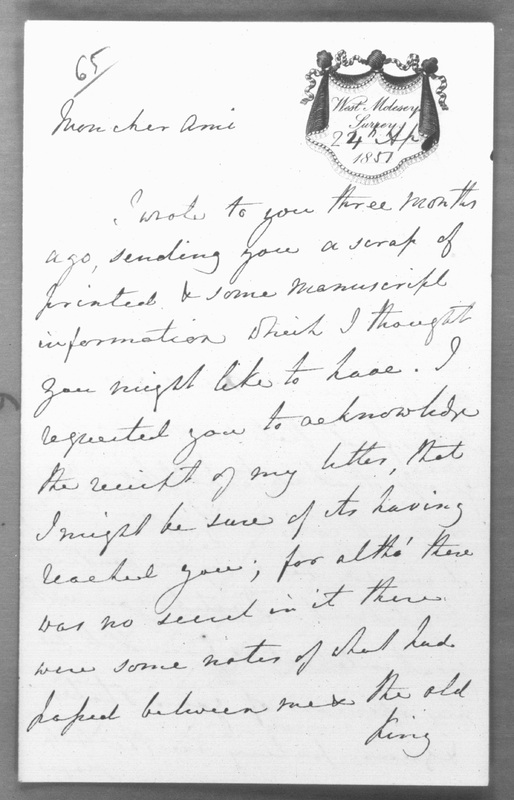 65
West Molesey
Surrey
24th Ap
1857
Mon cher Ami
I wrote to you three months
ago, sending you a scrap of
printed & some manuscript
information which I thought
you might like to have. I
requested you to acknowledge
the receipt of my letter, that
I might be sure of its having
reached you; for altho' there
was no secret in it there
were some notes of what had
passed between me & the old
King